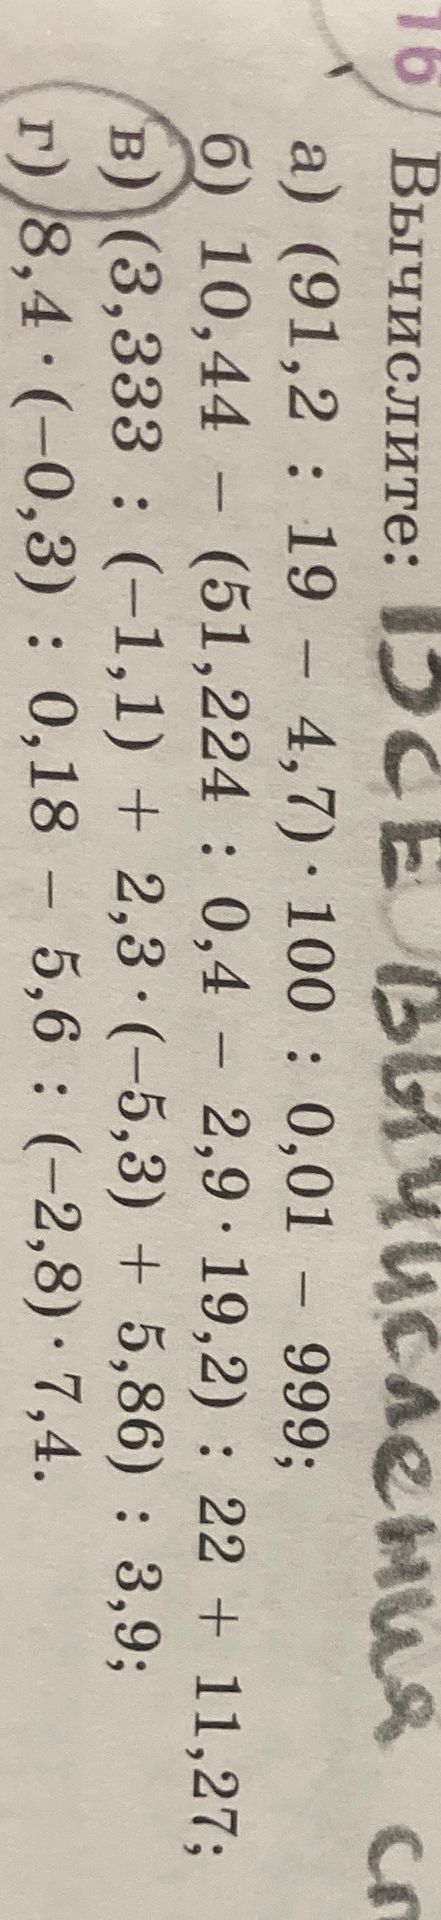 16 Вычислите: ВСЕ ВЫЧИСЛЕНИЯ
а) (91,2 : 19 − 4,7) · 100 : 0,01 − 999;
б) 10,44 − (51,224 : 0,4 − 2,9 · 19,2) : 22 + 11,27;
в) (3,333 : (−1,1) + 2,3 · (−5,3) + 5,86) : 3,9;
г) 8,4 · (−0,3) : 0,18 − 5,6 : (−2,8) · 7,4.